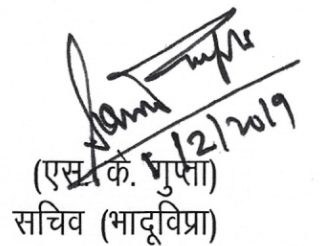 /2/2019
(एस. के. गुप्ता)
सचिव (भादूविप्रा)